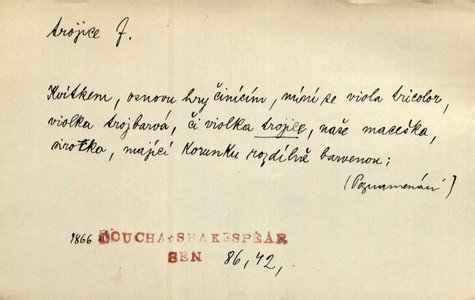 trojice f.
Kvítkem, osnovu hry činícím, míní se viola tricolor,
violka trojbarvá, či violka trojice, naše maceška,
sirotka, mající korunku rozdílně barvenou;
(Poznamenání]
1866 DOUCHA-SHAKESPEAR
SEN 86,42,-